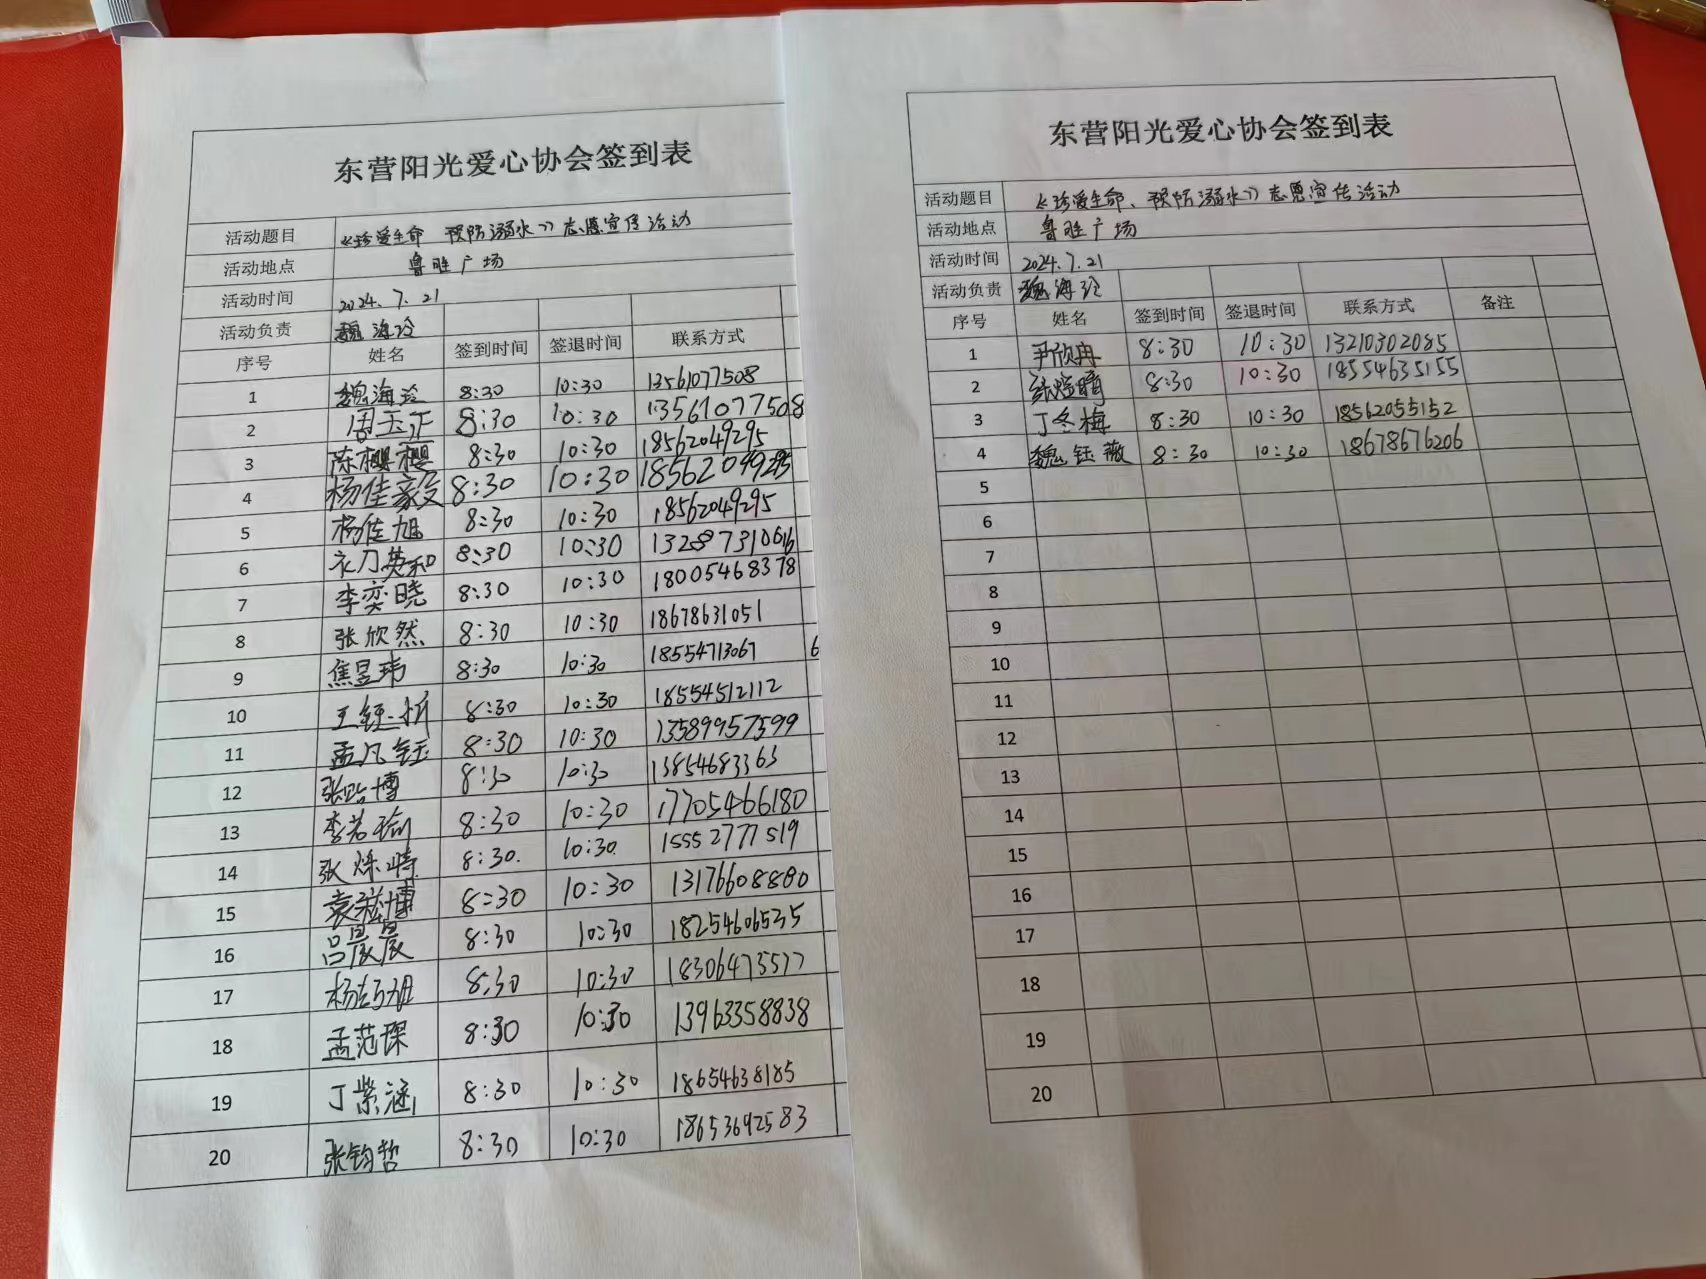 东营阳光爱心协会签到表
活动题目 《珍爱生命 预防溺水》志愿宣传活动
活动地点 鲁胜广场
活动时间 2024.7.21
活动负责 魏海玲
序号 姓名 签到时间 签退时间 联系方式
1 魏海玲 8:30 10:30 13561077508
2 周玉正 8:30 10:30 13561077508
3 陈樱樱 8:30 10:30 18562049295
4 杨佳毅 8:30 10:30 18562049295
5 杨佳旭 8:30 10:30 18562049295
6 衣刀英和 8:30 10:30 13287310616
7 李奕晓 8:30 10:30 18005468378
8 张欣然 8:30 10:30 18678631051
9 焦昱玮 8:30 10:30 18554713067 6
10 王 8:30 10:30 18554512112
11 孟凡钰 8:30 10:30 13589957599
12 张贻博 8:30 10:30 13854683363
13 李若瑜 8:30 10:30 17705466180
14 张烁 8:30. 10:30. 15552777519
15 袁 博 8:30 10:30 13176608880
16 吕晨晨 8:30 10:30 18254606535
17 杨 旭 8:30 10:30 18306475577
18 孟范琛 8:30 10:30 13963358838
19 丁紫涵 8:30 10:30 18654638185
20 张钧哲 8:30 10:30 18653692583
东营阳光爱心协会签到表
活动题目 《珍爱生命、预防溺水》志愿宣传活动
活动地点 鲁胜广场
活动时间 2024.7.21
活动负责 魏海玲
序号 姓名 签到时间 签退时间 联系方式 备注
1 尹欣冉 8:30 10:30 13210302085
2 张煊晴 8:30 10:30 18554635155
3 丁冬梅 8:30 10:30 18562055152
4 魏钰薇 8:30 10:30 18678676206
5
6
7
8
9
10
11
12
13
14
15
16
17
18
19
20